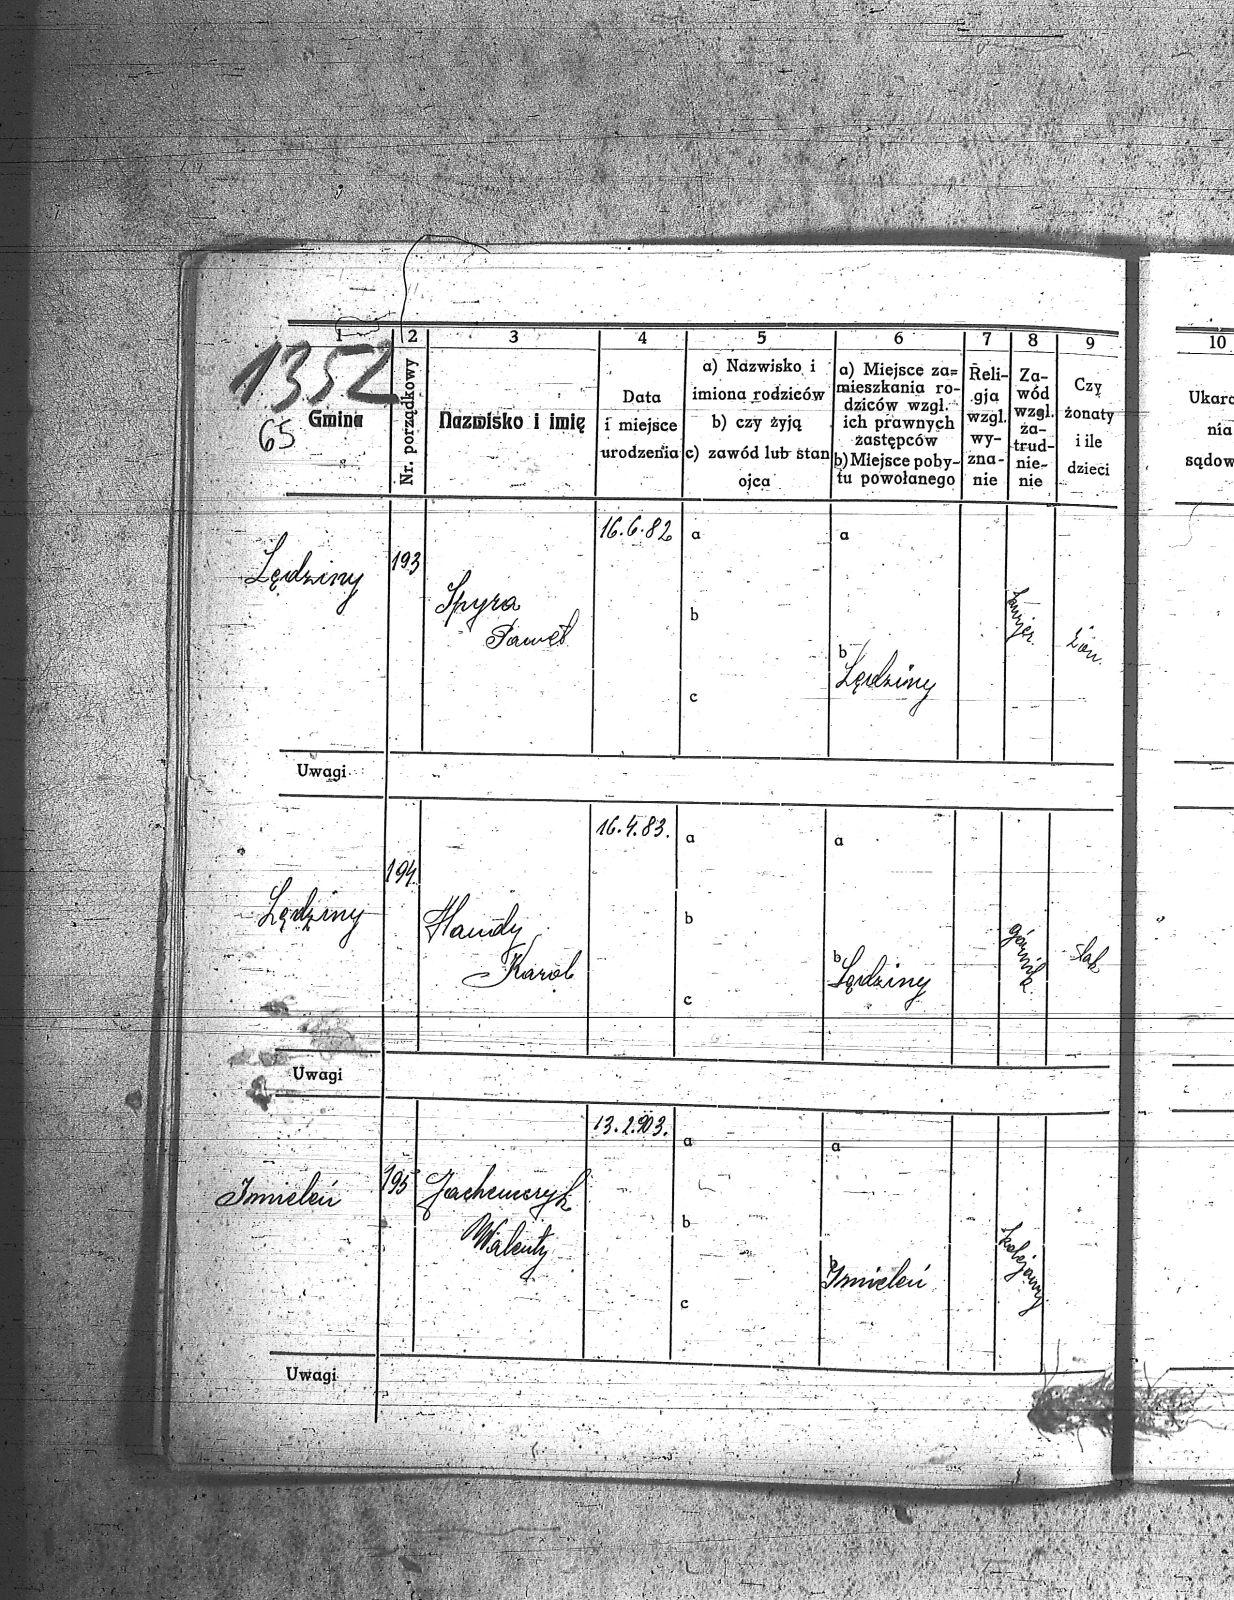 1 2 3 4 5 6 7 8 9 10
1352
65
Gmina
Nr. porządkowy
Nazwisko i imię
Data
i miejsce
urodzenia
a) Nazwisko i
imiona rodziców
b) czy żyją
c) zawód lub stan
ojca
a) Miejsce za=
mieszkania ro-
dziców wzgl.
ich prawnych
zastępców
b) Miejsce poby-
tu powołanego
Reli-
gja
wzgl.
wy-
zna-
nie
Za-
wód
wzgl.
za-
trud-
nie-
nie
Czy
żonaty
i ile
dzieci
Ukara
nia
sądow
Lędziny
193
Spyra
Paweł
16.6.82
a
b
c
a
b
Lędziny
żon.
Uwagi
Lędziny
194
Handy
Karol
16.4.83.
a
b
c
a
b
Lędziny
górnik
Uwagi
Imieleń
195
Walenty
13.2.903.
a
b
c
a
Imieleń
Uwagi